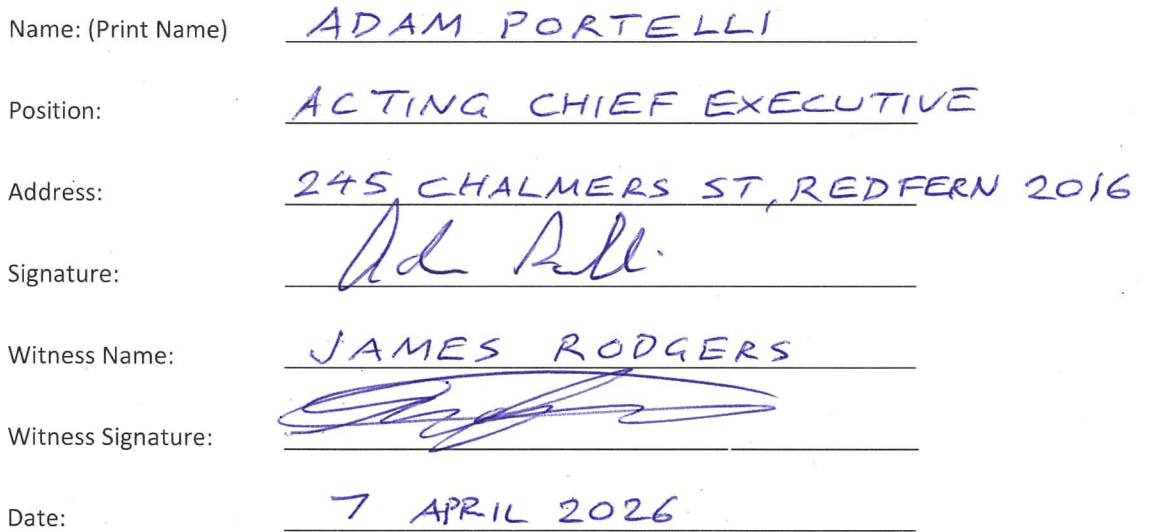 Name: (Print Name) ADAM PORTELLI
Position: ACTING CHIEF EXECUTIVE
Address: 245 CHALMERS ST, REDFERN 2016
Signature:
Witness Name: JAMES RODGERS
Witness Signature:
Date: 7 APRIL 2026